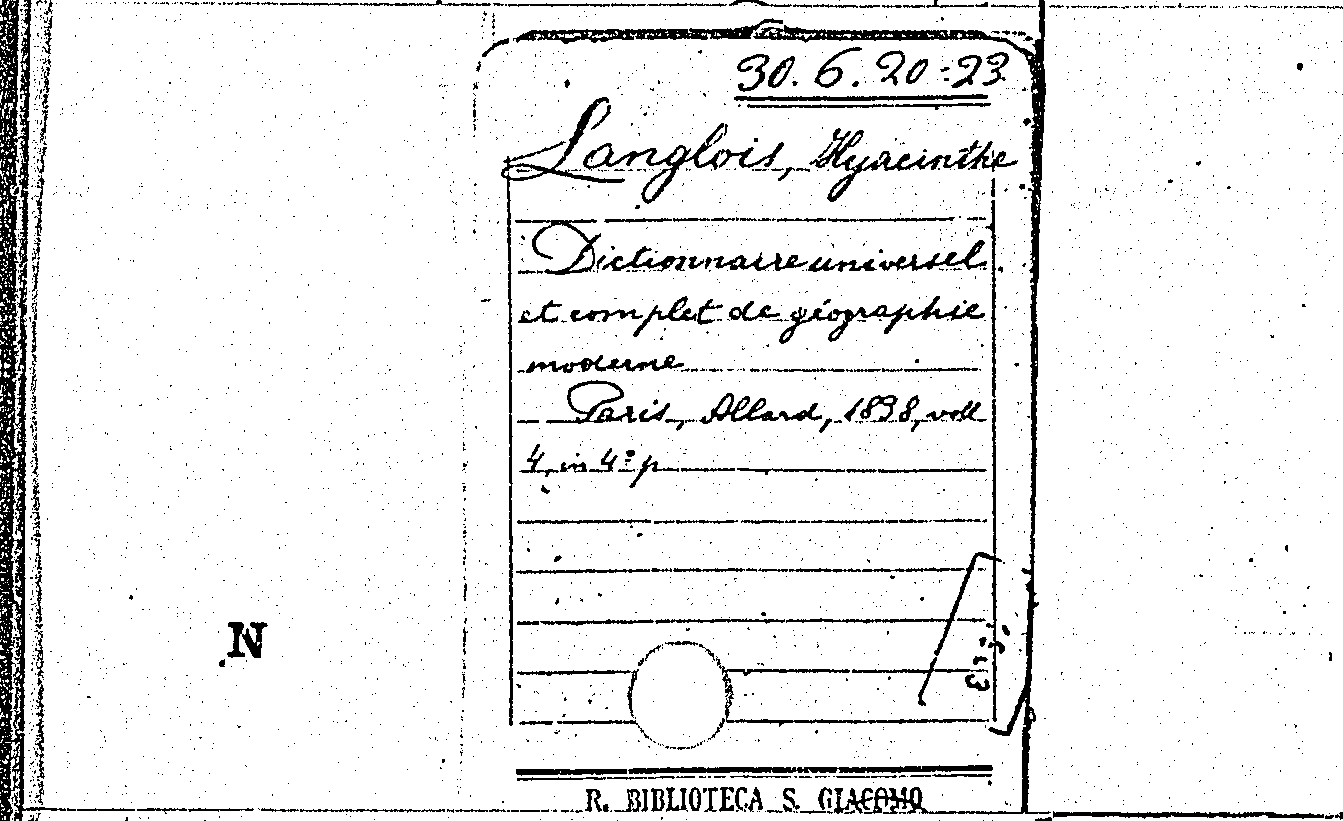 30. 6. 20-23
Langlois, Hyacinthe
Dictionnaire universel
et complet de géographie
moderne
Paris, Allard, 1838, voll
4, in 4º p
N
R. BIBLIOTECA S. GIACOMO